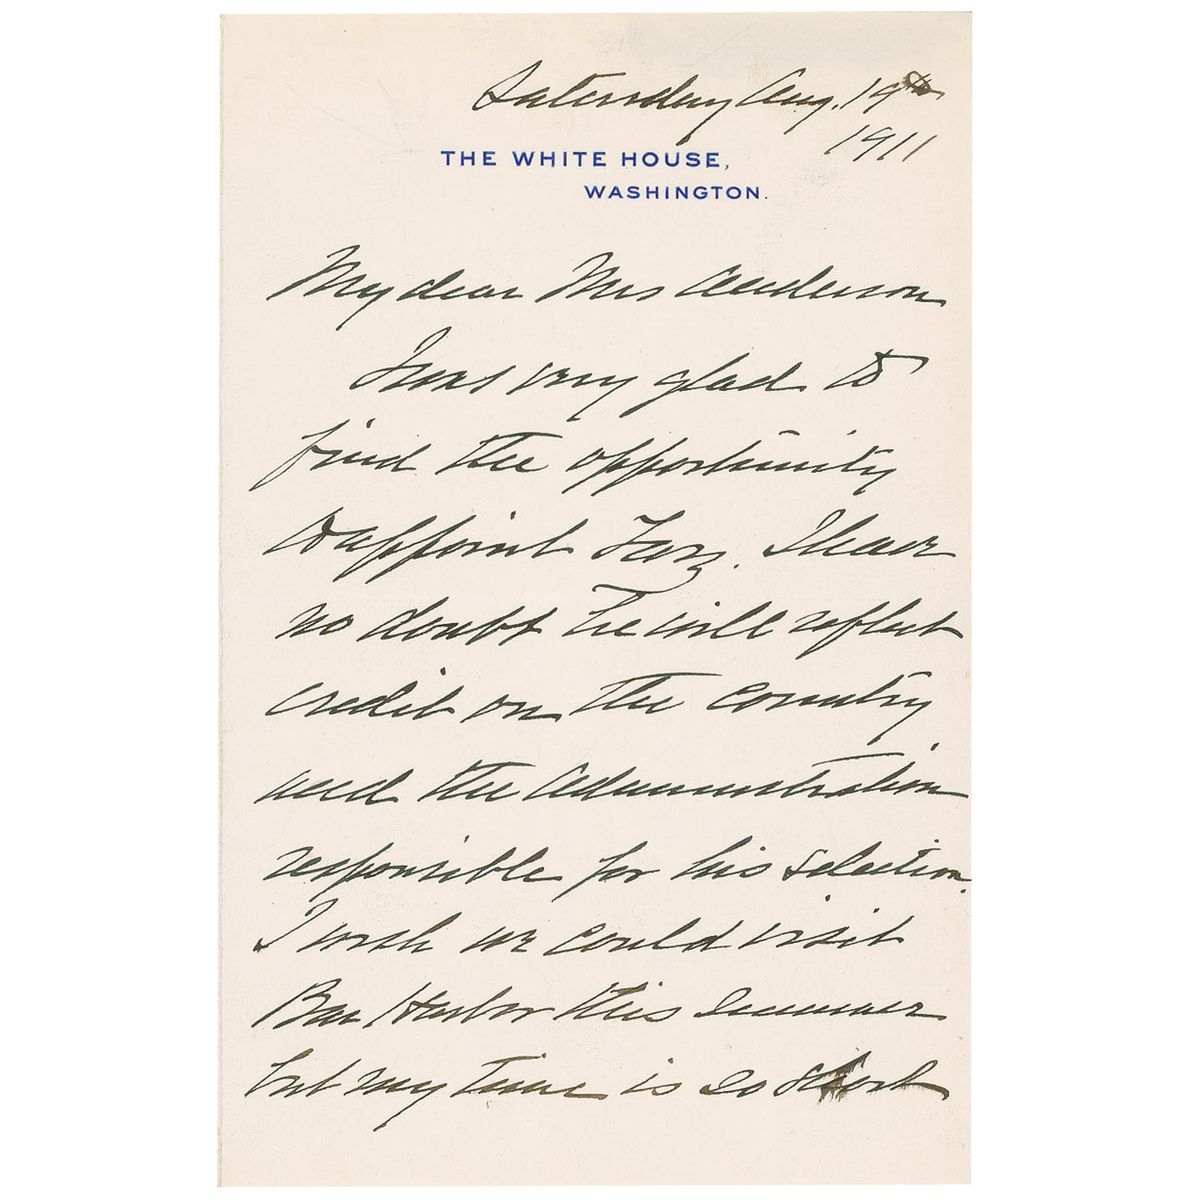 Saturday Aug. 19th
1911
THE WHITE HOUSE,
WASHINGTON.
My dear Mrs Anderson
I was very glad to
find the opportunity
to appoint Larz. I have
no doubt he will reflect
credit on the country
and the administration
responsible for his selection.
I wish we could visit
Bar Harbor this summer
but my time is so short